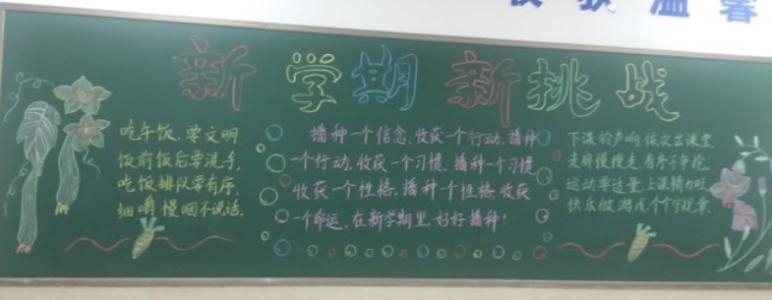 收获温馨
新学期新挑战
吃午饭，要文明
饭前饭后要洗手，
吃饭排队要有序，
细嚼慢咽不说话。
播种一个信念，收获一个行动，播种
一个行动，收获一个习惯，播种一个习惯
收获一个性格，播种一个性格，收获
一个命运，在新学期里，好好播种！
下课铃声响，依次出课堂，
走廊慢慢走，有序不争抢，
运动要适量，上课精力旺
快乐做游戏，个个守规章。